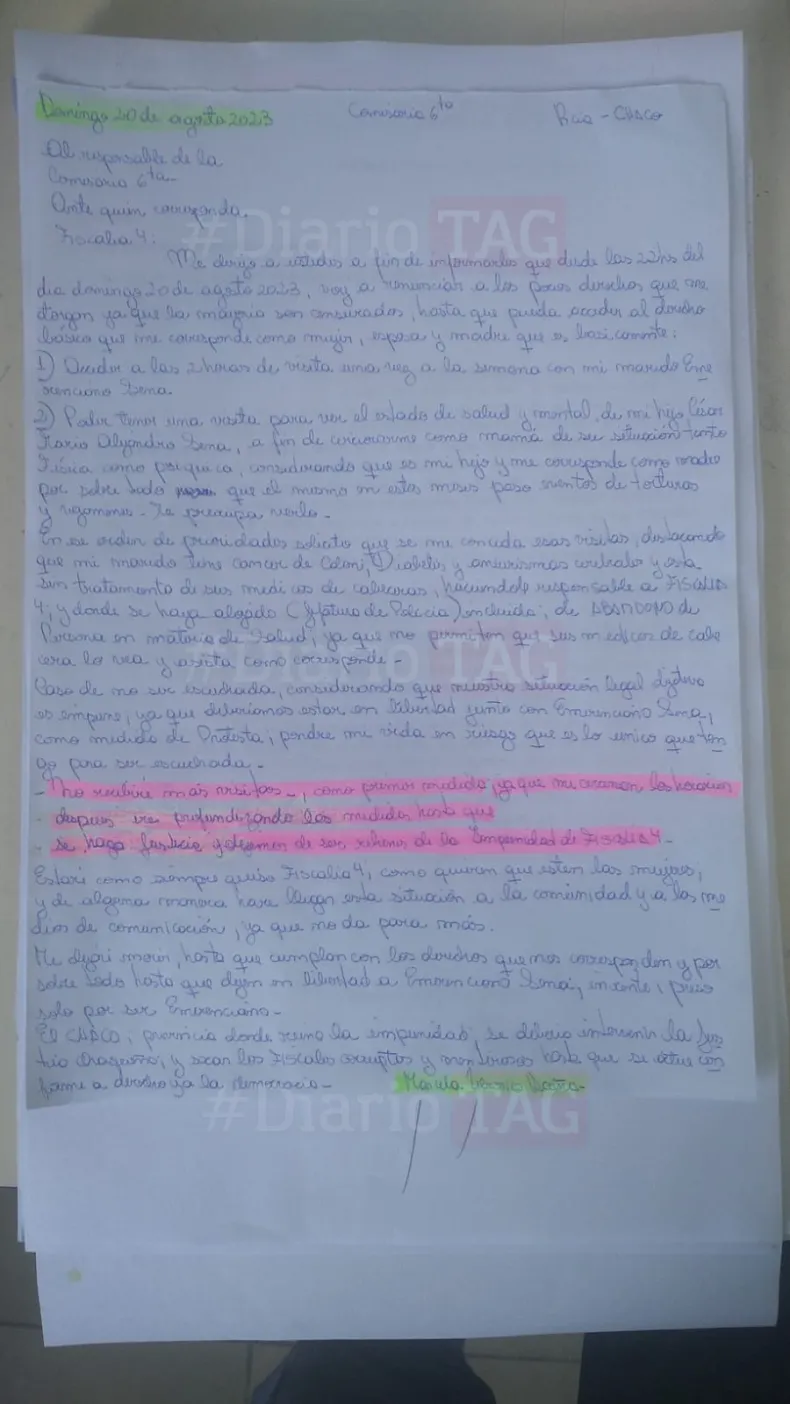 Domingo 20 de agosto 2023 Comisaria 6ta Rcia - CHACO
Al responsable de la
Comisaria 6ta-
Ante quien corresponda.
Fiscalia 4.
#Diario TAG
Me dirijo a ustedes a fin de informarles que desde las 22hs del
dia domingo 20 de agosto 2023, voy a renunciar a los pocos derechos que me
otorgan ya que la mayoria son censurados, hasta que pueda acceder al derecho
básico que me corresponde como mujer, esposa y madre que es basicamente:
1) Acceder a las 2 horas de visita una vez a la semana con mi marido Eme
renciano Sena.
2) Poder tener una visita para ver el estado de salud y mental, de mi hijo César
Mario Alejandro Sena, a fin de cerciorarme como mamá de su situación tanto
Física como psiquica, considerando que es mi hijo y me corresponde como madre
por sobre todo que el mismo en estos meses paso eventos de torturas
y vejamenes - Me preocupa verlo -
En ese orden de prioridades solicito que se me conceda esas visitas, destacando
que mi marido tiene cancer de Colon, Diabetes y aneurismas cerebrales y esta
sin tratamiento de sus medicos de cabeceras, haciendole responsable a FISCALIA
4, y donde se haya alojado (Jefatura de Policia) incluida, de ABANDONO de
Persona en materia de Salud, ya que no permiten que sus medicos de cabe
cera lo vea y asista como corresponde -
#Diario TAG
Caso de no ser escuchada, considerando que nuestra situación legal
es impune, ya que deberiamos estar en libertad junto con Emerenciano Sena,
como medida de Protesta, pondre mi vida en riesgo que es lo unico que ten
go para ser escuchada -
- No recibire más visitas -, como primer medida, ya que me cercenan los horarios
- despues ire profundizando las medidas hasta que
- se haga Justicia y dejemos de ser rehenes de la Impunidad de FISCALIA 4 -
Estaré como siempre quiso Fiscalia 4, como quieren que esten las mujeres,
y de alguna manera hara llegar esta situación a la comunidad y a los me
dios de comunicación, ya que no da para más.
Me dejaré morir, hasta que cumplan con los derechos que nos corresponden y por
sobre todo hasta que dejen en libertad a Emerenciano Sena, inocente, preso
solo por ser Emerenciano -
El CHACO, provincia donde reina la impunidad, se deberia intervenir la Jus
ticia Chaqueña, y sacar los Fiscales corruptos y mentirosos hasta que se actue con
forme a derecho y a la democracia - Marcela Acuña -
#Diario TAG